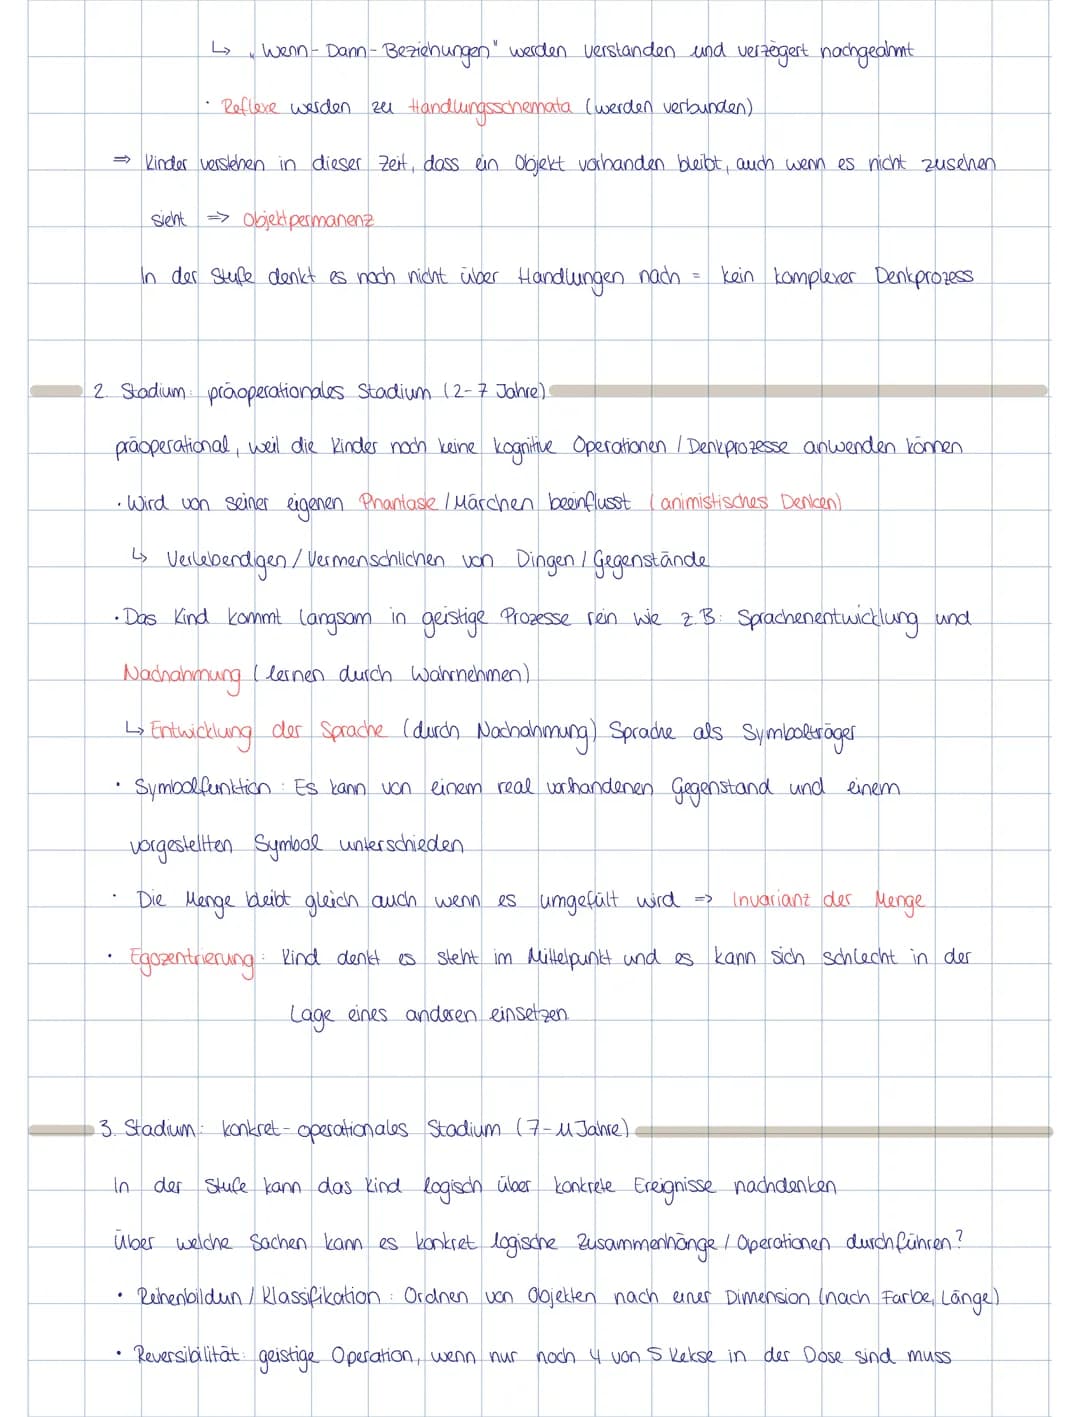 ↳ „Wenn-Dann-Beziehungen" werden verstanden und verzögert nachgeahmt
· Reflexe werden zu Handlungsschemata (werden verbunden)
⇒ Kinder verstehen in dieser Zeit, dass ein Objekt vorhanden bleibt, auch wenn es nicht zusehen
sieht ⇒ Objektpermanenz
In der Stufe denkt es noch nicht über Handlungen nach = kein komplexer Denkprozess
2. Stadium: präoperationales Stadium (2-7 Jahre)
präoperational, weil die Kinder noch keine kognitive Operationen / Denkprozesse anwenden können
· Wird von seiner eigenen Phantasie / Märchen beeinflusst (animistisches Denken)
↳ Verlebendigen / Vermenschlichen von Dingen / Gegenstände
· Das Kind kommt langsam in geistige Prozesse rein wie z.B: Sprachenentwicklung und
Nachahmung (lernen durch Wahrnehmen)
↳ Entwicklung der Sprache (durch Nachahmung) Sprache als Symbolträger
· Symbolfunktion: Es kann von einem real vorhandenen Gegenstand und einem
vorgestellten Symbol unterschieden
· Die Menge bleibt gleich auch wenn es umgefült wird => Invarianz der Menge
· Egozentrierung: Kind denkt es steht im Mittelpunkt und es kann sich schlecht in der
Lage eines anderen einsetzen
3. Stadium: konkret-operationales Stadium (7-11 Jahre)
In der Stufe kann das Kind logisch über konkrete Ereignisse nachdenken
Über welche Sachen kann es konkret logische Zusammenhänge / Operationen durchführen?
· Reihenbildun / Klassifikation: Ordnen von Objekten nach einer Dimension (nach Farbe, Länge)
· Reversibilität: geistige Operation, wenn nur noch 4 von 5 Kekse in der Dose sind muss